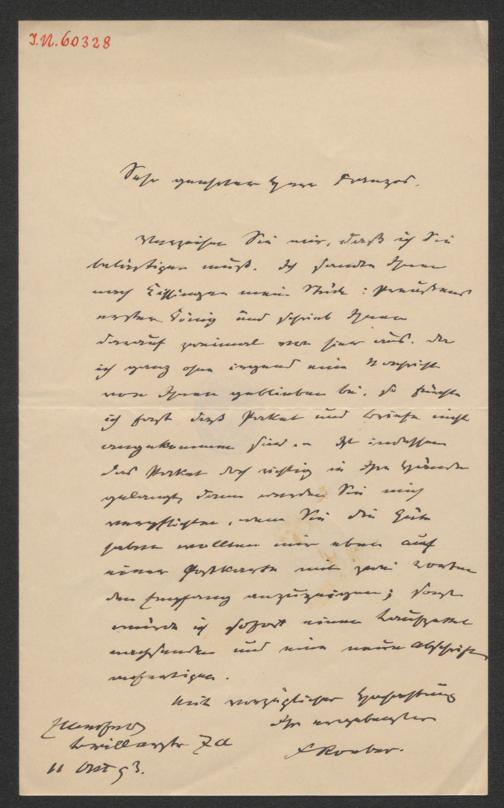 I.N. 60328
Sehr geehrter Herr Franzos.
Verzeihen Sie mir, daß ich Sie
belästigen muß. Ich sandte Ihnen
nach Kissingen mein Stück: Preußens
erster König und schrieb Ihnen
darauf zweimal von hier aus. Da
ich ganz ohne irgend eine Nachricht
von Ihnen geblieben bin, so fürchte
ich fast daß Paket und Briefe nicht
angekommen sind. – Ist indessen
das Paket doch richtig in Ihre Hände
gelangt, dann würden Sie mich
verpflichten, wenn Sie die Güte
haben wollten mir eben auf
einer Postkarte mit zwei Worten
den Empfang anzuzeigen; sonst
würde ich sofort einen Laufzettel
nachsenden und eine neue Abschrift
anfertigen.
Mit vorzüglicher Hochachtung
Ihr ergebenster
F Roeber.
7 a
11 Okt 93.